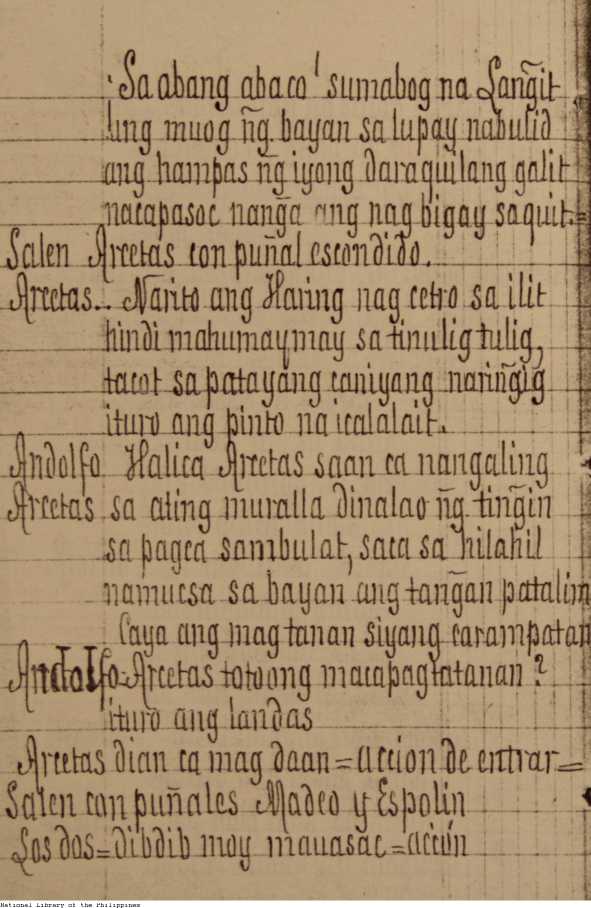 Sa abang abaco! sumabog na Lang̃it
ung muog ñg. bayan sa lupay nabulid
ang hampas ñg iyong daraquilang galit
nacapasoc nang̃a ang nag bigay saquit.=
Salen Arcetas con puñal escondido.
Arcetas.. Narito ang Haring nag cetro sa ilit
hindi mahumaymay sa tinulig tulig,
tacot sa patayang caniyang naring̃ig
ituro ang pinto na icalalait.
Andolfo Halica Arcetas saan ca nangaling
Arcetas sa ating muralla dinalao ñg. ting̃in
sa pagca sambulat, saca sa hilahil
namucsa sa bayan ang tang̃an patalim
Caya ang mag tanan siyang carampatan
Andolfo=Arcetas totoong macapagtatanan?
ituro ang landas
Arcetas dian ca mag daan=accion de entrar=
Salen con puñales Madeo y Espolin
Los dos=dibdib moy mauasac=acción
National Library of the Philippines